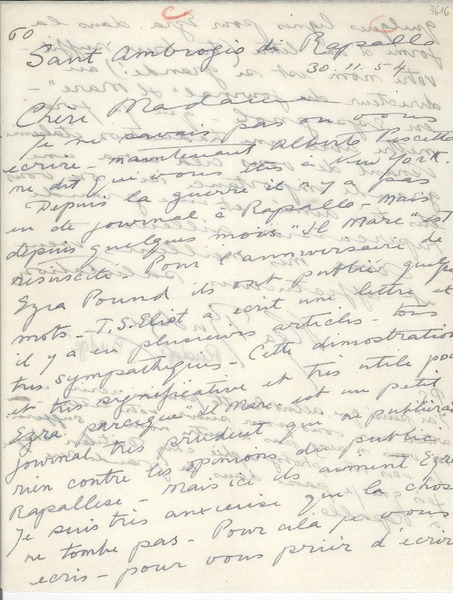 7616
60
Sant Ambrogio di Rapallo
30.11.54
Chère Madame
Je ne savais pas où vous
ecrire - maintenant Alberto Pescetto
me dit que vous êtes à New York.
Depuis la guerre il n'y a pas
eu de journal à Rapallo - mais
depuis quelques mois "Il Mare" est
resuscité. Pour l'anniversaire de
Ezra Pound ils ont publié quelque
mots - T.S. Eliot a ecrit une lettre et
il y a eu plusieurs articles - tous
très sympathiques - Cette dimostration
est très significative et très utile pour
Ezra parceque "Il Mare" est un petit
journal très prudent que ne publierai
rien contre les opinions du public
Rapallese - Mais ici ils aiment Ezra
Je suis très anxieuse que la chose
ne tombe pas - Pour cila je vous
ecris - pour vous prier d'ecrir